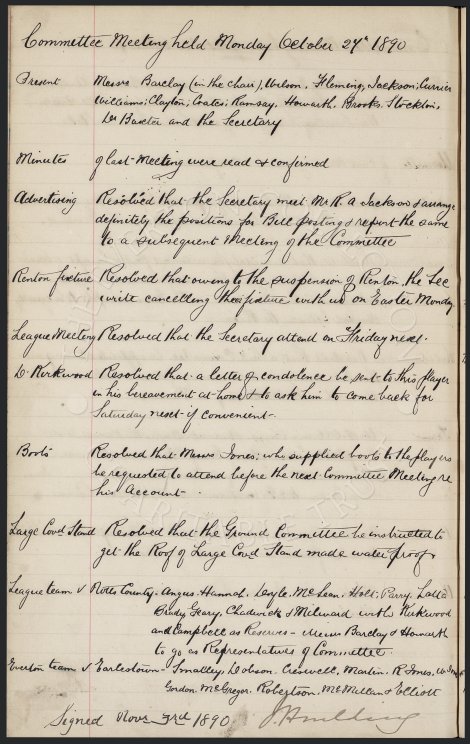 Committee Meeting held Monday October 27th 1890
Present Messrs Barclay (in the chair), Wilson, Fleming, Jackson, Currier
Williams, Clayton, Coates, Ramsay, Howarth, Brooks, Stockton,
Dr Baxter and the Secretary
Minutes of last Meeting were read & confirmed
Advertising Resolved that the Secretary meet Mr R. A Jackson & arrange
definitely the positions for Bill posting & report the same
to a subsequent Meeting of the Committee
Renton fixture Resolved that owing to the suspension of Renton, the Sec
write cancelling their fixture with us on Easter Monday
League Meeting Resolved that the Secretary attend on Friday next.
D. Kirkwood Resolved that a letter of condolence be sent to this player
in his bereavement at home & to ask him to come back for
Saturday next if convenient.
Boots Resolved that Messrs Jones, who supplied boots to the players
be requested to attend before the next Committee Meeting re
his Account.
Large Cov'd Stand Resolved that the Ground Committee be instructed to
get the Roof of Large Cov'd Stand made water proof.
League team v Notts County. Angus, Hannah, Doyle, McLean, Holt, Parry, Latta
Brady, Geary, Chadwick & Milward with Kirkwood
and Campbell as Reserves - Messrs Barclay & Howarth
to go as Representatives of Committee.
Everton team v Earlestown - Smalley, Dobson, Creswell, Martin, R Jones, W
Gordon, McGregor, Robertson, McMillan & Elliott
Signed Novr 3rd 1890.